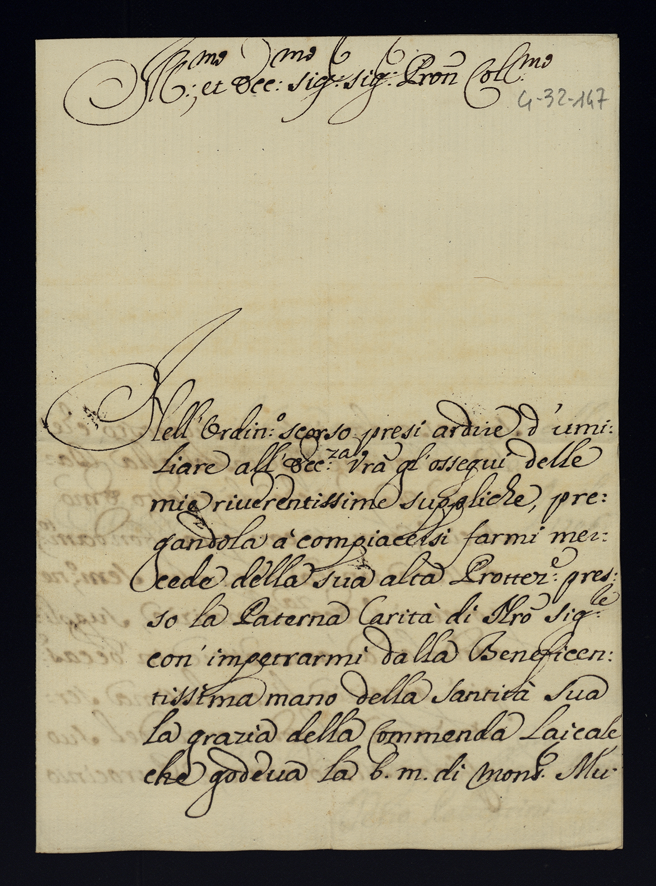 Ill.mo et Ecc.mo Sig.r Sig.r Pron Coll.mo
4-32-147
Nell'Ordin.o scorso presi ardire d'umi:
liare all'Ecc.za vrã gl'ossequi delle
mie riverentissime suppliche, pre:
gandola à compiacersi farmi mer:
cede della sua alta Protter.e pres:
so la Paterna Carità di Nrõ Sig.re
con'impetrarmi dalla Beneficen:
tissima mano della Santità Sua
la grazia della Commenda Laicale
che godeva la b. m. di Mons.r Mu: